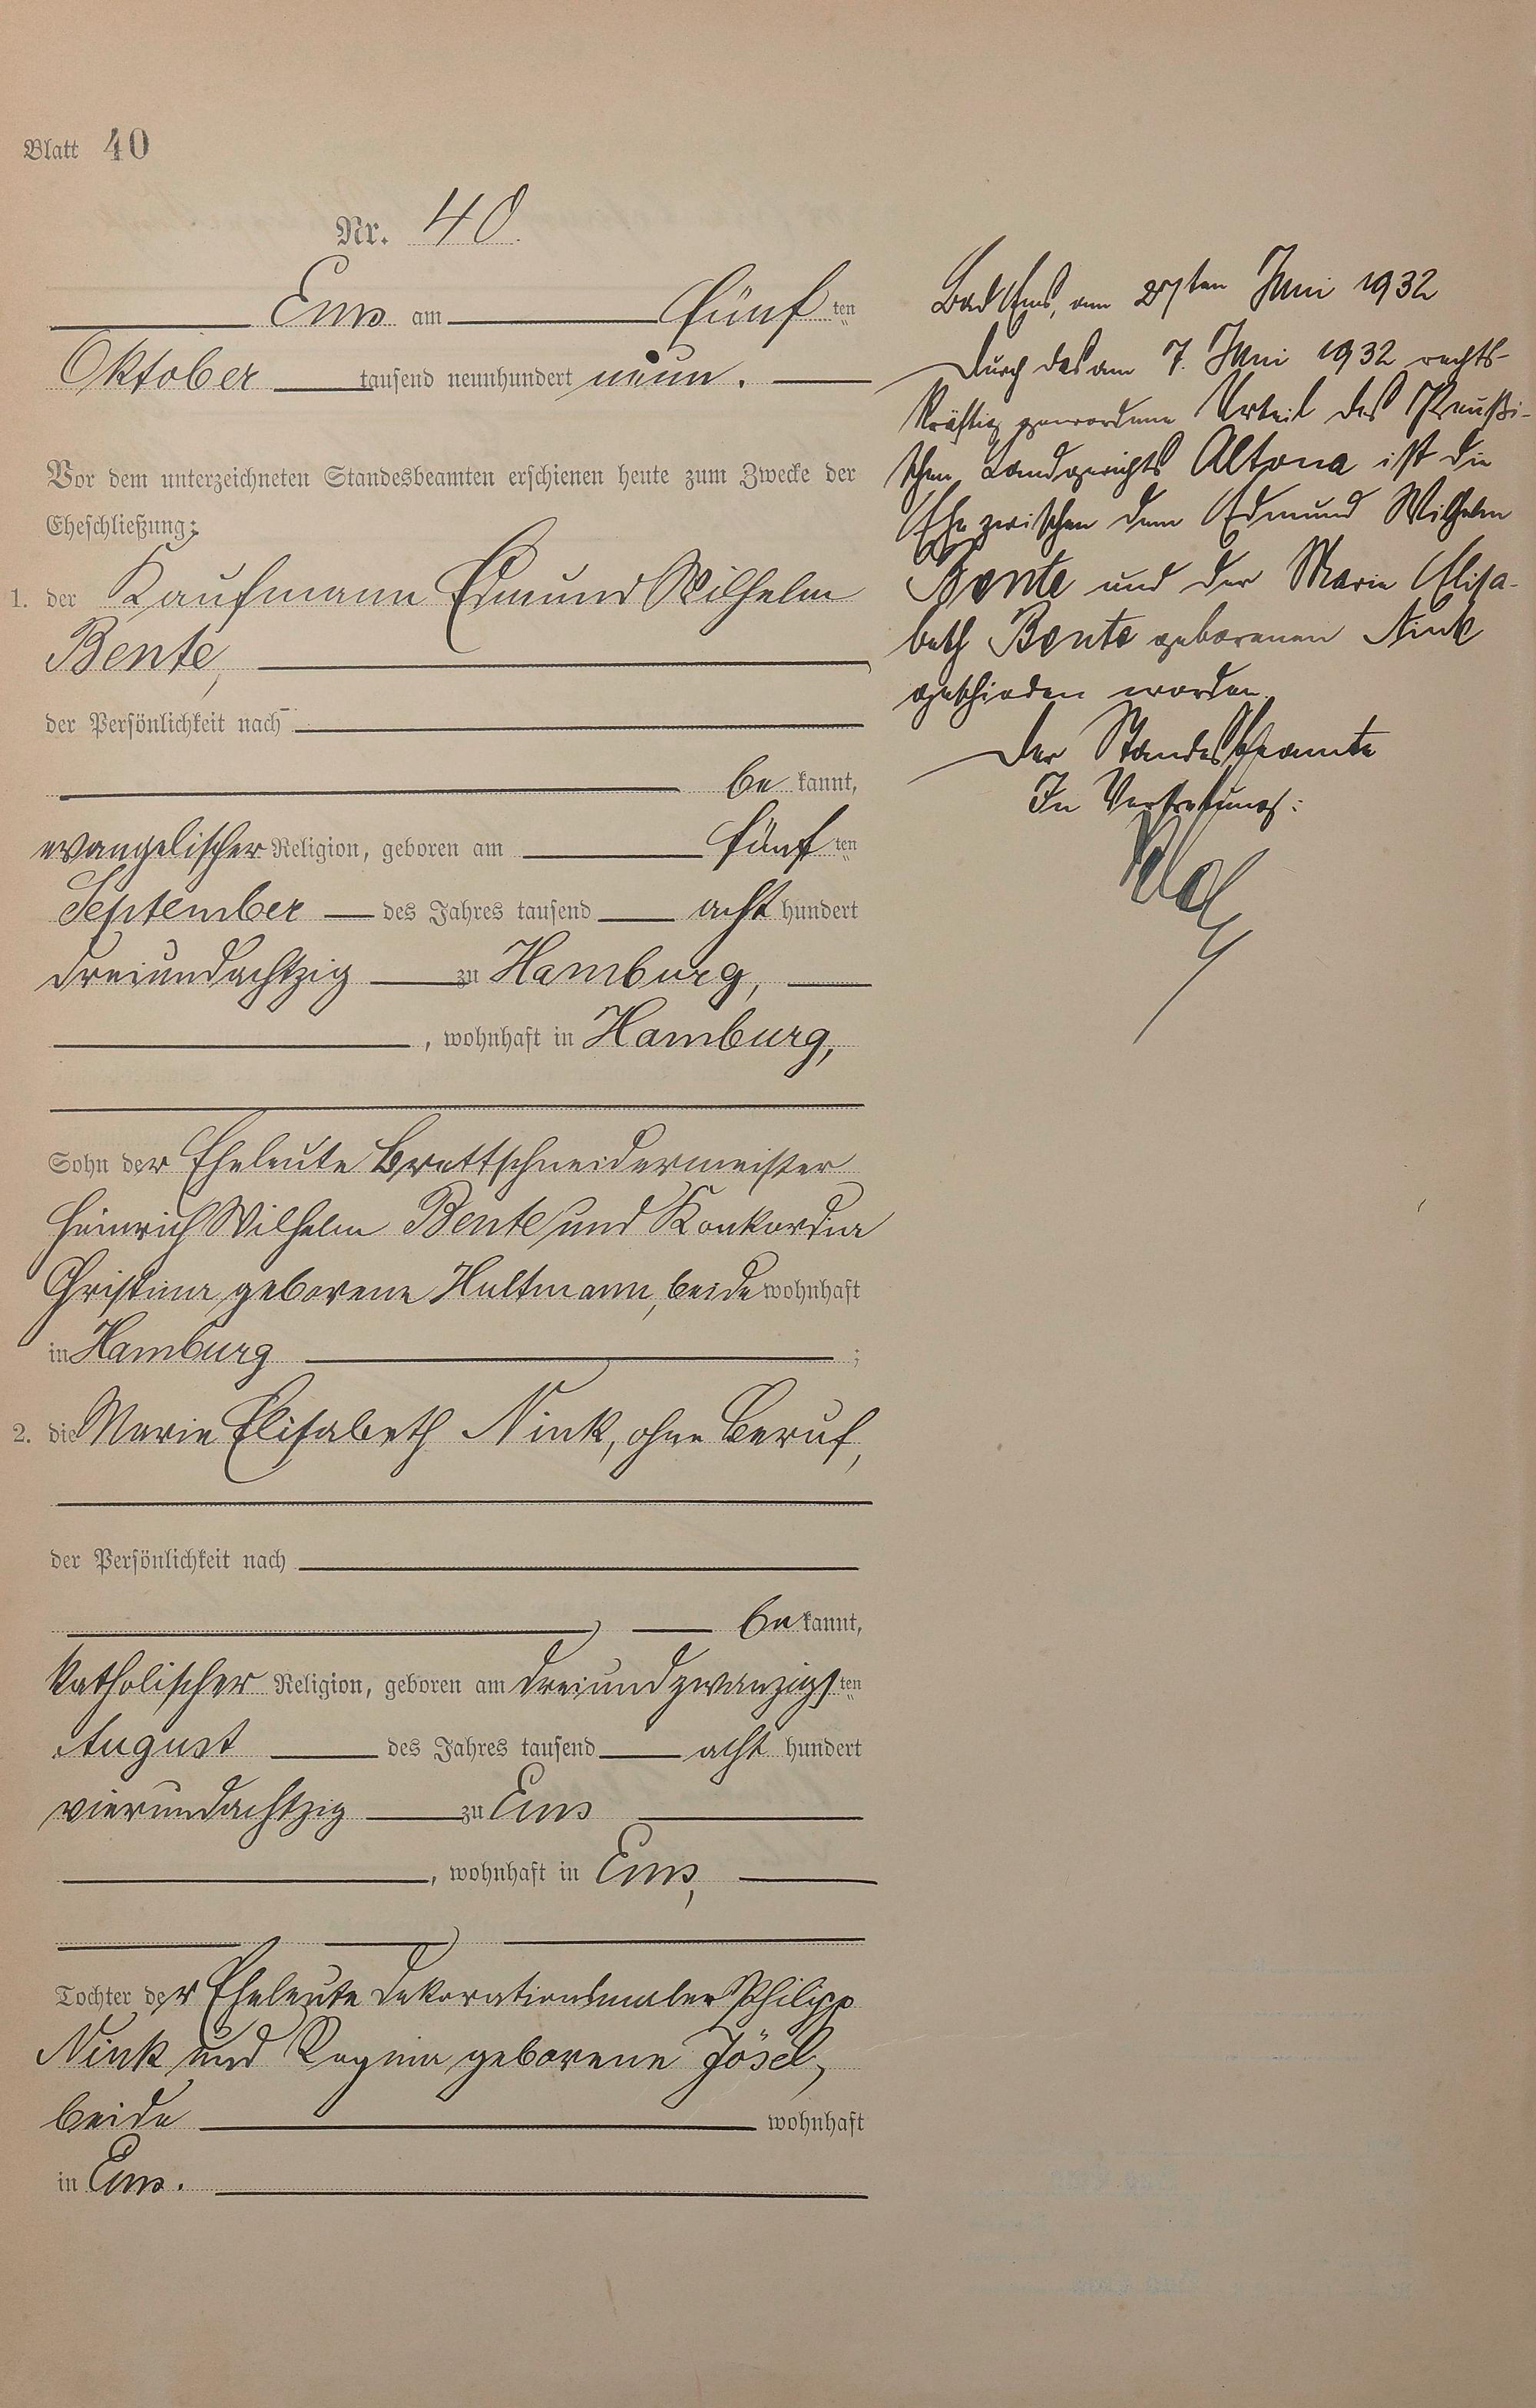 Blatt 40
Nr. 40.
Ems am fünf ten
Oktober tausend neunhundert neun.
Vor dem unterzeichneten Standesbeamten erschienen heute zum Zwecke der
Eheschließung:
1. der Kaufmann Edmund Wilhelm
Bente,
der Persönlichkeit nach
be kannt,
evangelischer Religion, geboren am fünf ten
September des Jahres tausend acht hundert
dreiundachtzig zu Hamburg,
, wohnhaft in Hamburg,
Sohn der Eheleute Brettschneidermeister
Heinrich Wilhelm Bente und Konkordia
Christina geborene Hultmann, beide wohnhaft
in Hamburg ;
2. die Marie Elisabeth Nink, ohne Beruf,
der Persönlichkeit nach
be kannt,
katholischer Religion, geboren am dreiundzwanzigs ten
August des Jahres tausend acht hundert
vierundachtzig zu Ems
, wohnhaft in Ems,
Tochter der Eheleute Dekorationsmaler Philipp
Nink und Regina geborene Jösel,
beide wohnhaft
in Ems.
Bad Ems, am 27ten Juni 1932
Durch das am 7. Juni 1932 rechts-
kräftig gewordene Urteil des Preußi-
schen Landgerichts Altona ist die
Ehe zwischen dem Edmund Wilhelm
Bente und der Marie Elisa-
beth Bente geborenen Nink
geschieden worden.
Der Standesbeamte
In Vertretung: